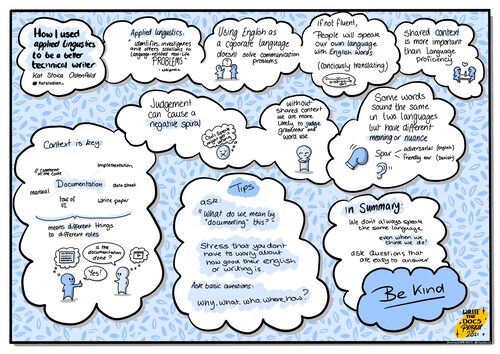 How I used
applied linguistics
to be a better
technical writer
Kat Stoica Ostenfeld
Applied linguistics:
identifies, investigates
and offers solutions to
language-related real-life
PROBLEMS
- Wikipedia
Using English as
a coporate language
doesn't solve communication
problems
if not fluent,
People will speak
our own language
with English words
(conciously translating)
Shared context
is more important
than Language
proficiency
Judgement
can cause a
negative spiral
Without
shared context
we are more
likely to judge
grammar and
word use
Some words
sound the same in
two languages
but have different
meaning or nuance
Spar
adversarial (English)
Friendly ear (Danish)
Context is key:
implementation
manual
Documentation
data sheet
white paper
means different things
to different roles
is the
documentation
done?
Yes!
Tips
ask:
"What do we mean by
"documenting" this?
Stress that you don't
have to worry about
how good their english
or writing is.
Ask basic questions:
Why, what, who, where, how?
in Summary:
We don't always speak
the same language.
even when we
think we do!
ask questions that
are easy to answer
Be Kind
WRITE
THE
DOCS
PRAGUE
2021